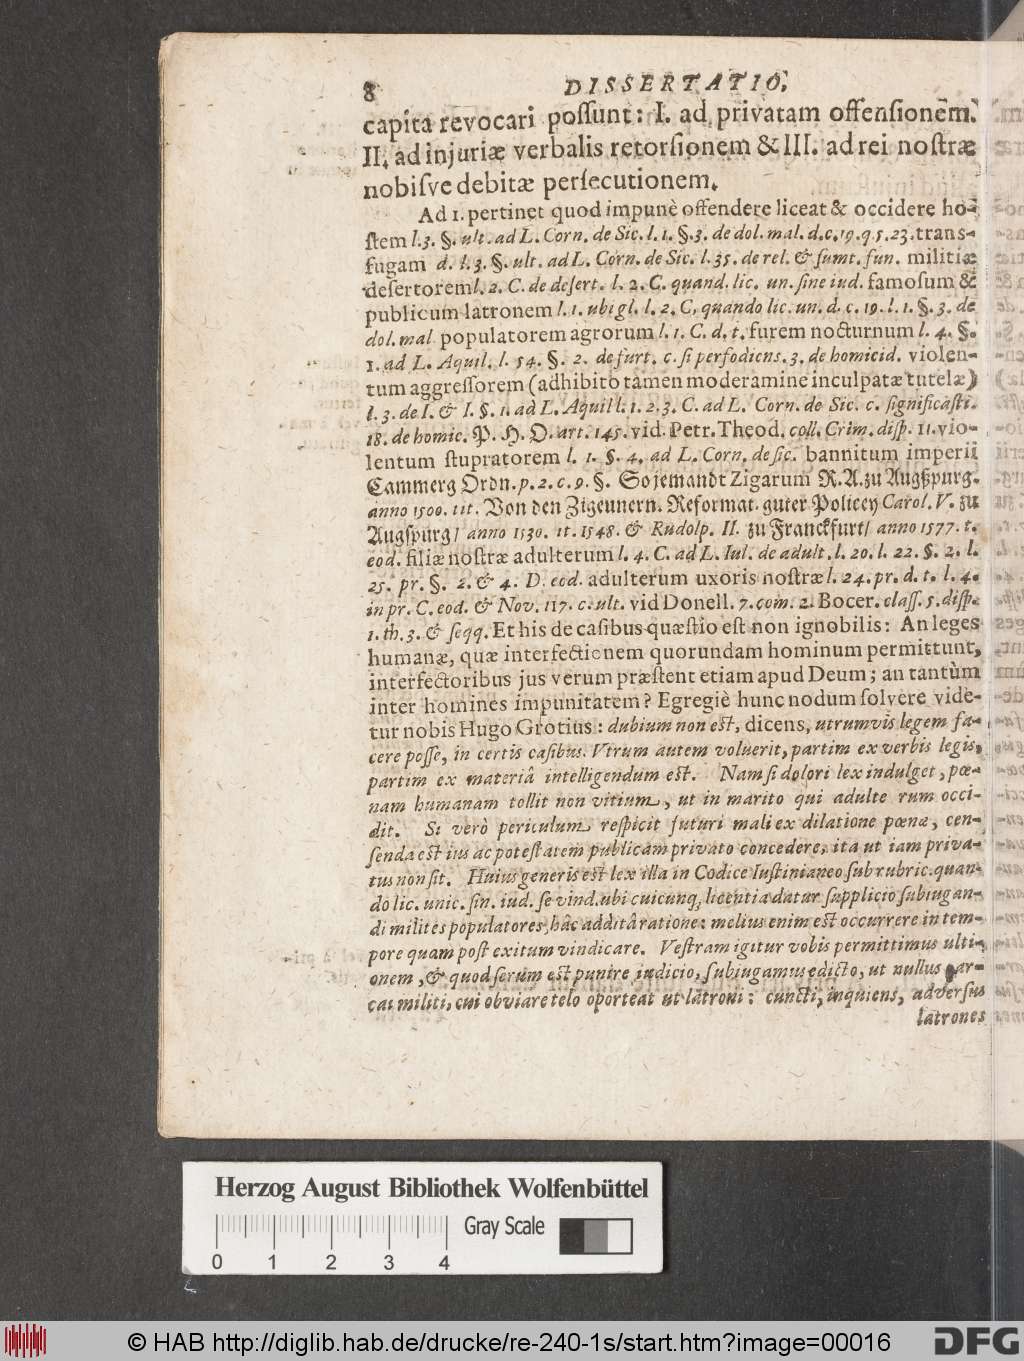 8 DISSERTATIO.
capita revocari possunt: I. ad privatam offensionem.
II. ad injuriæ verbalis retorsionem & III. ad rei nostræ
nobisve debitæ persecutionem.
Ad 1. pertinet quod impunè offendere liceat & occidere ho-
stem l. 3. §. ult. ad L. Corn. de Sic. l. 1. §. 3. de dol. mal. d. c. 19. q. 5. 23. trans-
fugam d. l. 3. §. ult. ad L. Corn. de Sic. l. 35. de rel. & sumt. fun. militiæ
desertorem l. 2. C. de desert. l. 2. C. quand. lic. un. sine iud. famosum &
publicum latronem l. 1. ubi gl. l. 2. C. quando lic. un. d. c. 19. l. 1. §. 3. de
dol. mal. populatorem agrorum l. 1. C. d. t. furem nocturnum l. 4. §.
1. ad L. Aquil. l. 54. §. 2. de furt. c. si perfodiens. 3. de homicid. violen-
tum aggressorem (adhibito tamen moderamine inculpatæ tutelæ)
l. 3. de I. & I. §. 1. ad L. Aquil l. 1. 2. 3. C. ad L. Corn. de Sic. c. significasti.
18. de homic. P. H. O. art. 145. vid. Petr. Theod. coll. Crim. disp. 11. vio-
lentum stupratorem l. 1. §. 4. ad L. Corn. de sic. bannitum imperii
Cammerg Ordn. p. 2. c. 9. §. So jemandt Zigarum R. A. zu Augßpurg.
anno 1500. tit. Von den Zigeunern. Reformat. guter Policey Carol. V. zu
Augspurg/ anno 1530. it. 1548. & Rudolp. II. zu Franckfurt/ anno 1577. t.
eod. filiæ nostræ adulterum l. 4. C. ad L. Iul. de adult. l. 20. l. 22. §. 2. l.
25. pr. §. 2. & 4. D. eod. adulterum uxoris nostræ l. 24. pr. d. t. l. 4.
in pr. C. eod. & Nov. 117. c. ult. vid Donell. 7. com. 2. Bocer. class. 5. disp.
1. th. 3. & seqq. Et his de casibus quæstio est non ignobilis: An leges
humanæ, quæ interfectionem quorundam hominum permittunt,
interfectoribus jus verum præstent etiam apud Deum; an tantùm
inter homines impunitatem? Egregiè hunc nodum solvere vide-
tur nobis Hugo Grotius: dubium non est, dicens, utrumvis legem fa-
cere posse, in certis casibus. Vtrum autem voluerit, partim ex verbis legis,
partim ex materiâ intelligendum est. Nam si dolori lex indulget, pœ-
nam humanam tollit non vitium, ut in marito qui adulte rum occi-
dit. Si verò periculum respicit futuri mali ex dilatione pœnæ, cen-
senda est ius ac potestatem publicam privato concedere, ita ut iam priva-
tus non sit. Huius generis est lex illa in Codice Iustinianeo sub rubric. quan-
do lic. unic. sin. iud. se vind. ubi cuicunq, licentia datur supplicio subiugan-
di milites populatores, hâc additâ ratione: melius enim est occurrere in tem-
pore quam post exitum vindicare. Vestram igitur vobis permittimus ulti-
onem, & quod serum est punire iudicio, subiugamus edicto, ut nullus par-
cat militi, cui obviare telo oporteat ut latroni: cuncti, inquiens, adversus
latrones
Herzog August Bibliothek Wolfenbüttel
0 1 2 3 4 Gray Scale
© HAB http://diglib.hab.de/drucke/re-240-1s/start.htm?image=00016 DFG